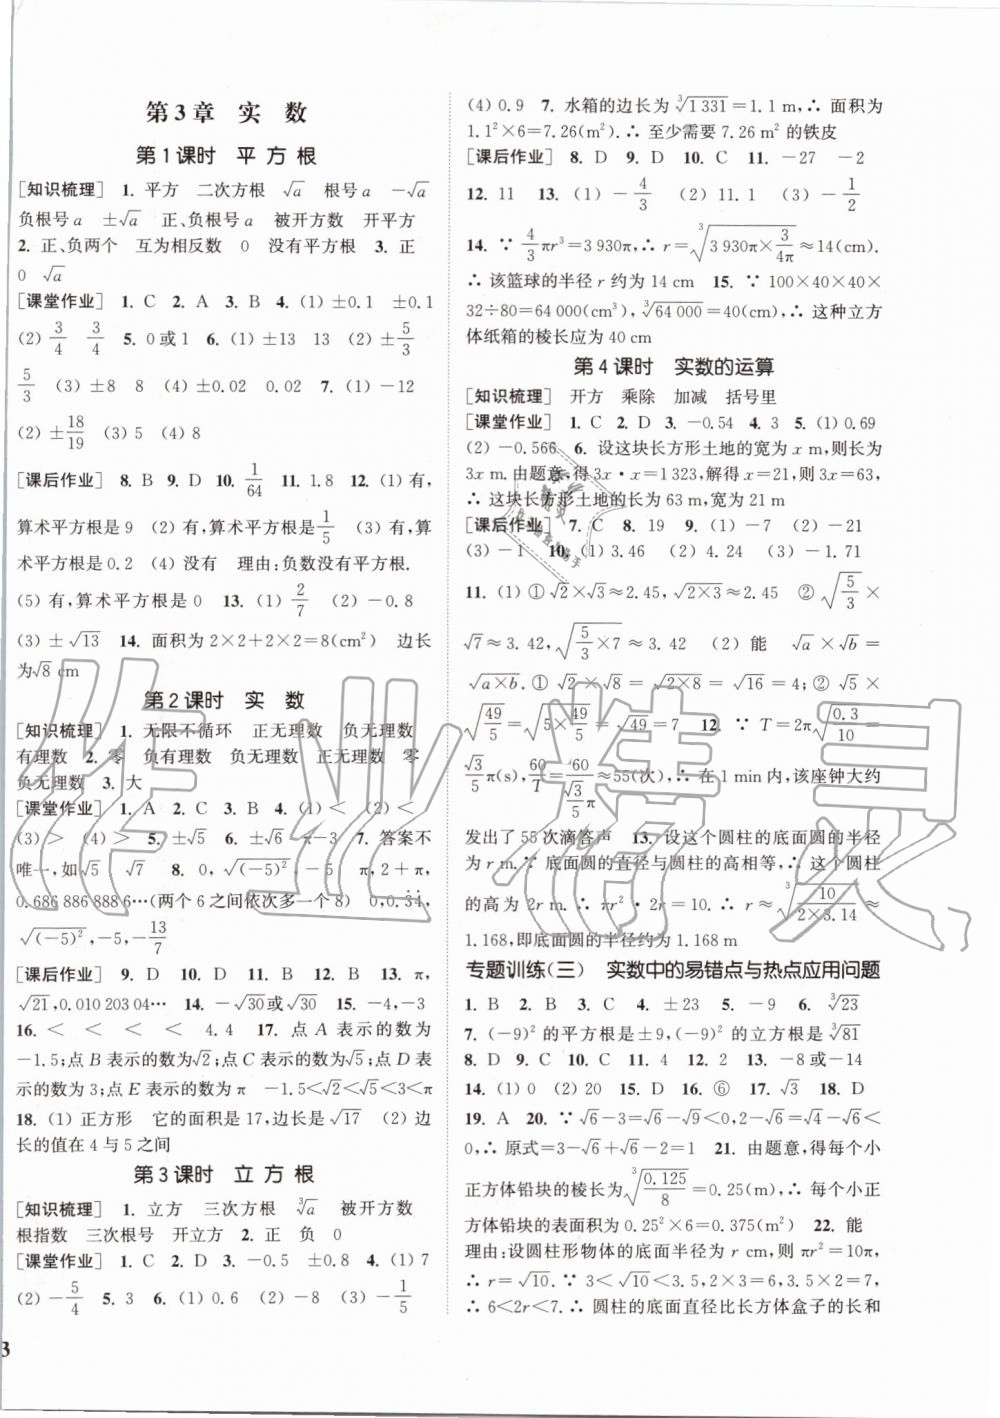 第3章 实 数
第1课时 平 方 根
[知识梳理] 1. 平方 二次方根 √a 根号a −√a
负根号a ±√a 正、负根号a 被开方数 开平方
2. 正、负两个 互为相反数 0 没有平方根 3. 正
0 √a
[课堂作业] 1. C 2. A 3. B 4. (1) ±0.1 ±0.1
(2) 3/4 3/4 5. 0或1 6. (1) ±13 13 (2) ±5/3
5/3 (3) ±8 8 (4) ±0.02 0.02 7. (1) −12
(2) ±18/19 (3) 5 (4) 8
[课后作业] 8. B 9. D 10. 1/64 11. 1.8 12. (1) 有,
算术平方根是 9 (2) 有,算术平方根是1/5 (3) 有,算
术平方根是 0.2 (4) 没有 理由:负数没有平方根.
(5) 有,算术平方根是 0 13. (1) 2/7 (2) −0.8
(3) ±√13 14. 面积为 2×2+2×2=8(cm²) 边长
为√8 cm
第2课时 实 数
[知识梳理] 1. 无限不循环 正无理数 负无理数
有理数 2. 零 负有理数 负无理数 正无理数 零
负无理数 3. 大
[课堂作业] 1. A 2. C 3. B 4. (1) < (2) <
(3) > (4) > 5. ±√5 6. ±√6 −3 7. 答案不
唯一,如√5 √7 8. 0, √(−5)², −5 π, 2+π,
0.686 886 888 6…(两个 6 之间依次多一个 8) 0, 0.3̇4̇,
√(−5)², −5, −13/7
[课后作业] 9. D 10. D 11. A 12. B 13. π,
√21, 0.010 203 04… 14. −√30或√30 15. −4, −3
16. < < < < 4.4 17. 点 A 表示的数为
−1.5;点 B 表示的数为√2;点 C 表示的数为√5;点 D 表
示的数为 3;点 E 表示的数为 π −1.5<√2<√5<3<π
18. (1) 正方形 它的面积是 17,边长是√17 (2) 边
长的值在 4 与 5 之间
第3课时 立 方 根
[知识梳理] 1. 立方 三次方根 ³√a 被开方数
根指数 三次根号 开立方 2. 正 负 0
[课堂作业] 1. C 2. D 3. −0.5 ±0.8 4. (1) 7
(2) −5/4 5. 3 6. (1) 0.6 (2) −8 (3) −1/5
(4) 0.9 7. 水箱的边长为³√1 331=1.1 m,∴ 面积为
1.1²×6=7.26(m²).∴ 至少需要 7.26 m² 的铁皮
[课后作业] 8. D 9. D 10. C 11. −27 −2
12. 11 13. (1) −4/3 (2) 11.1 (3) −1/2
14. ∵ 4/3πr³=3 930π,∴ r=³√(3 930π×3/4π)≈14(cm).
∴ 该篮球的半径 r 约为 14 cm 15. ∵ 100×40×40×
32÷80=64 000(cm³), ³√64 000=40(cm),∴ 这种立方
体纸箱的棱长应为 40 cm
第4课时 实数的运算
[知识梳理] 开方 乘除 加减 括号里
[课堂作业] 1. C 2. D 3. −0.54 4. 3 5. (1) 0.69
(2) −0.566 6. 设这块长方形土地的宽为 x m,则长为
3x m.由题意,得 3x·x=1 323,解得 x=21,则 3x=63,
∴ 这块长方形土地的长为 63 m,宽为 21 m
[课后作业] 7. C 8. 19 9. (1) −7 (2) −21
(3) −1 10. (1) 3.46 (2) 4.24 (3) −1.71
11. (1) ① √2×√3≈2.45, √(2×3)≈2.45 ② √(5/3)×
√7≈3.42, √(5/3×7)≈3.42 (2) 能 √a×√b=
√(a×b). ① √2×√8=√(2×8)=√16=4;② √5×
√(49/5)=√(5×49/5)=√49=7 12. ∵ T=2π√(0.3/10)=
√3/5π(s), 60/T=60/(√3/5π)≈55(次),∴ 在 1 min内,该座钟大约
发出了 55 次滴答声 13. 设这个圆柱的底面圆的半径
为 r m.∵ 底面圆的直径与圆柱的高相等,∴ 这个圆柱
的高为 2r m.∴ πr²·2r=10.∴ r=³√(10/(2×3.14))≈
1.168,即底面圆的半径约为 1.168 m
专题训练(三) 实数中的易错点与热点应用问题
1. B 2. B 3. C 4. ±23 5. −9 6. ³√23
7. (−9)² 的平方根是±9,(−9)² 的立方根是³√81
8. D 9. C 10. C 11. 4 12. 2 13. −8或−14
14. (1) 0 (2) 20 15. D 16. ⑥ 17. √3 18. D
19. A 20. ∵ √6−3=√6−√9<0, 2−√6=√4−√6<
0,∴ 原式=3−√6+√6−2=1 21. 由题意,得每个小
正方体铅块的棱长为³√(0.125/8)=0.25(m),∴ 每个小正
方体铅块的表面积为 0.25²×6=0.375(m²) 22. 能
理由:设圆柱形物体的底面半径为 r cm,则 πr²=10π,
∴ r=√10. ∵ 3<√10<3.5, 2×3=6, 2×3.5=7,
∴ 6<2r<7.∴ 圆柱的底面直径比长方体盒子的长和
3
作业精灵